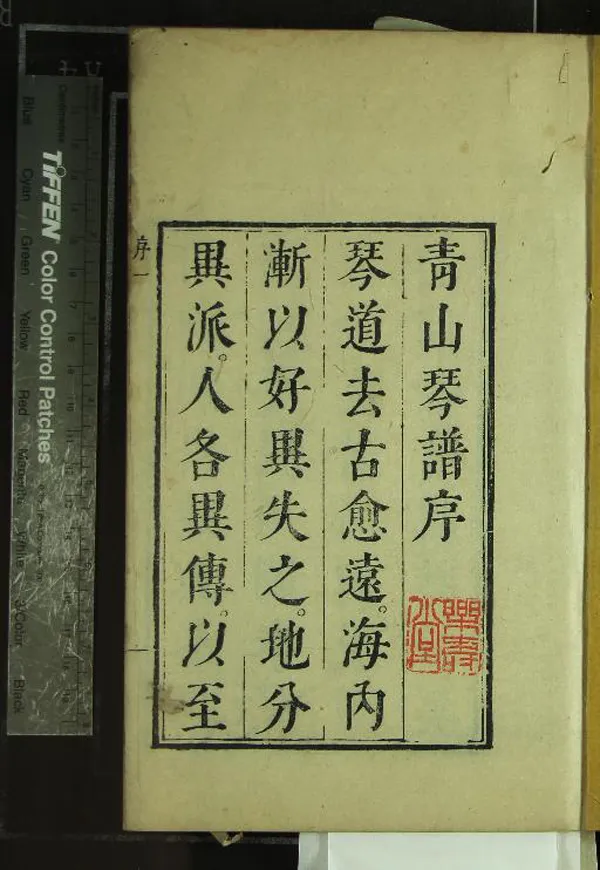 青山琴譜序
琴道去古愈遠。海內
漸以好異失之。地分
異派。人各異傳。以至
序一
TIFFEN Color Control Patches
Blue Cyan Green Yellow Red Magenta White 3/Color Black